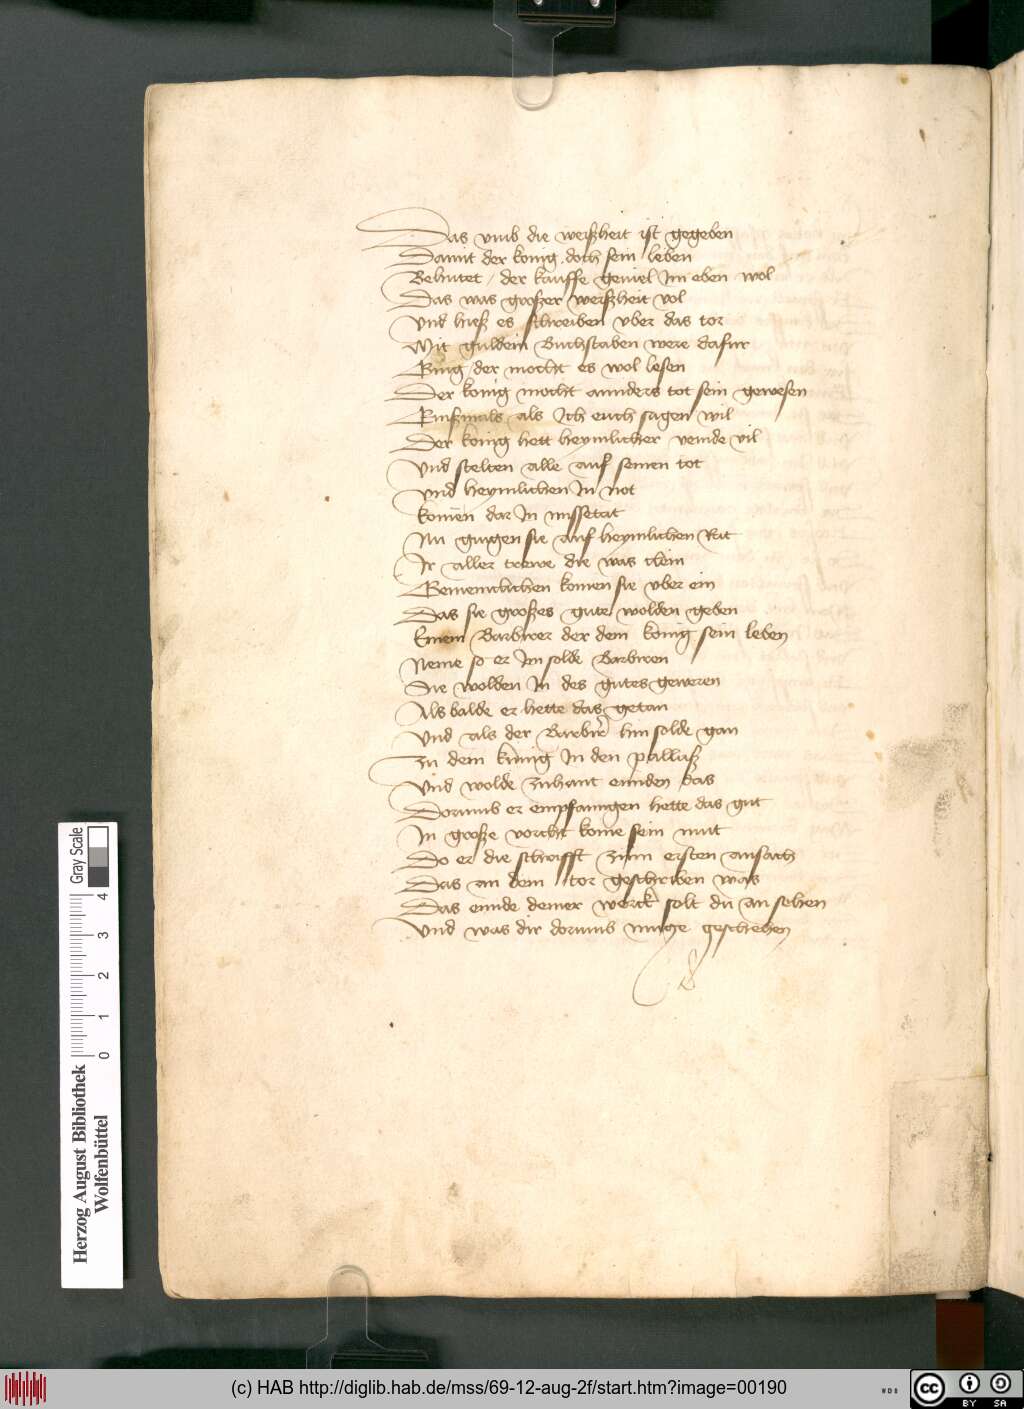 Das vmb die weißheit ist gegeben
Damit der konig doch sein leben
Behutet / der kauffe geuiel Im eben wol
Das was großer weißheit vol
Vnd hieß es schreiben vber das tor
Mit guldein Buchstaben were dafur
Ging der mocht es wol lesen
Der konig mocht annders tot sein gewesen
Einßmals als Ich euch sagen wil
Der konig hett heymlicher veinde vil
Vnd stelten alle auf seinen tot
Vnd heymlichen In not
komen dar In missetat
Nu gingen sie auf heymlichen Rat
Ir aller trewe die was clein
Gemeincklichen komen sie vber ein
Das sie großes gute wolden geben
Einem Barbirer der dem konig sein leben
Neme so er Im solde Barbiren
Sie wolden In des gutes geweren
Als balde er hette das getan
Vnd als der Barbirer hin solde gan
Zu dem kunig In den pallaß
Vnd wolde zuhant ennden das
Dorumb er empfanngen hette das gut
In große vorcht kome sein mut
Do er die schrifft zum ersten ansach
Das an dem tor geschriben was
Das ennde deiner werck solt du an sehen
Vnd was dir dorumb muge geschehen
Herzog August Bibliothek
Wolfenbüttel
0 1 2 3 4
Gray Scale
(c) HAB http://diglib.hab.de/mss/69-12-aug-2f/start.htm?image=00190
WDB
cc BY SA